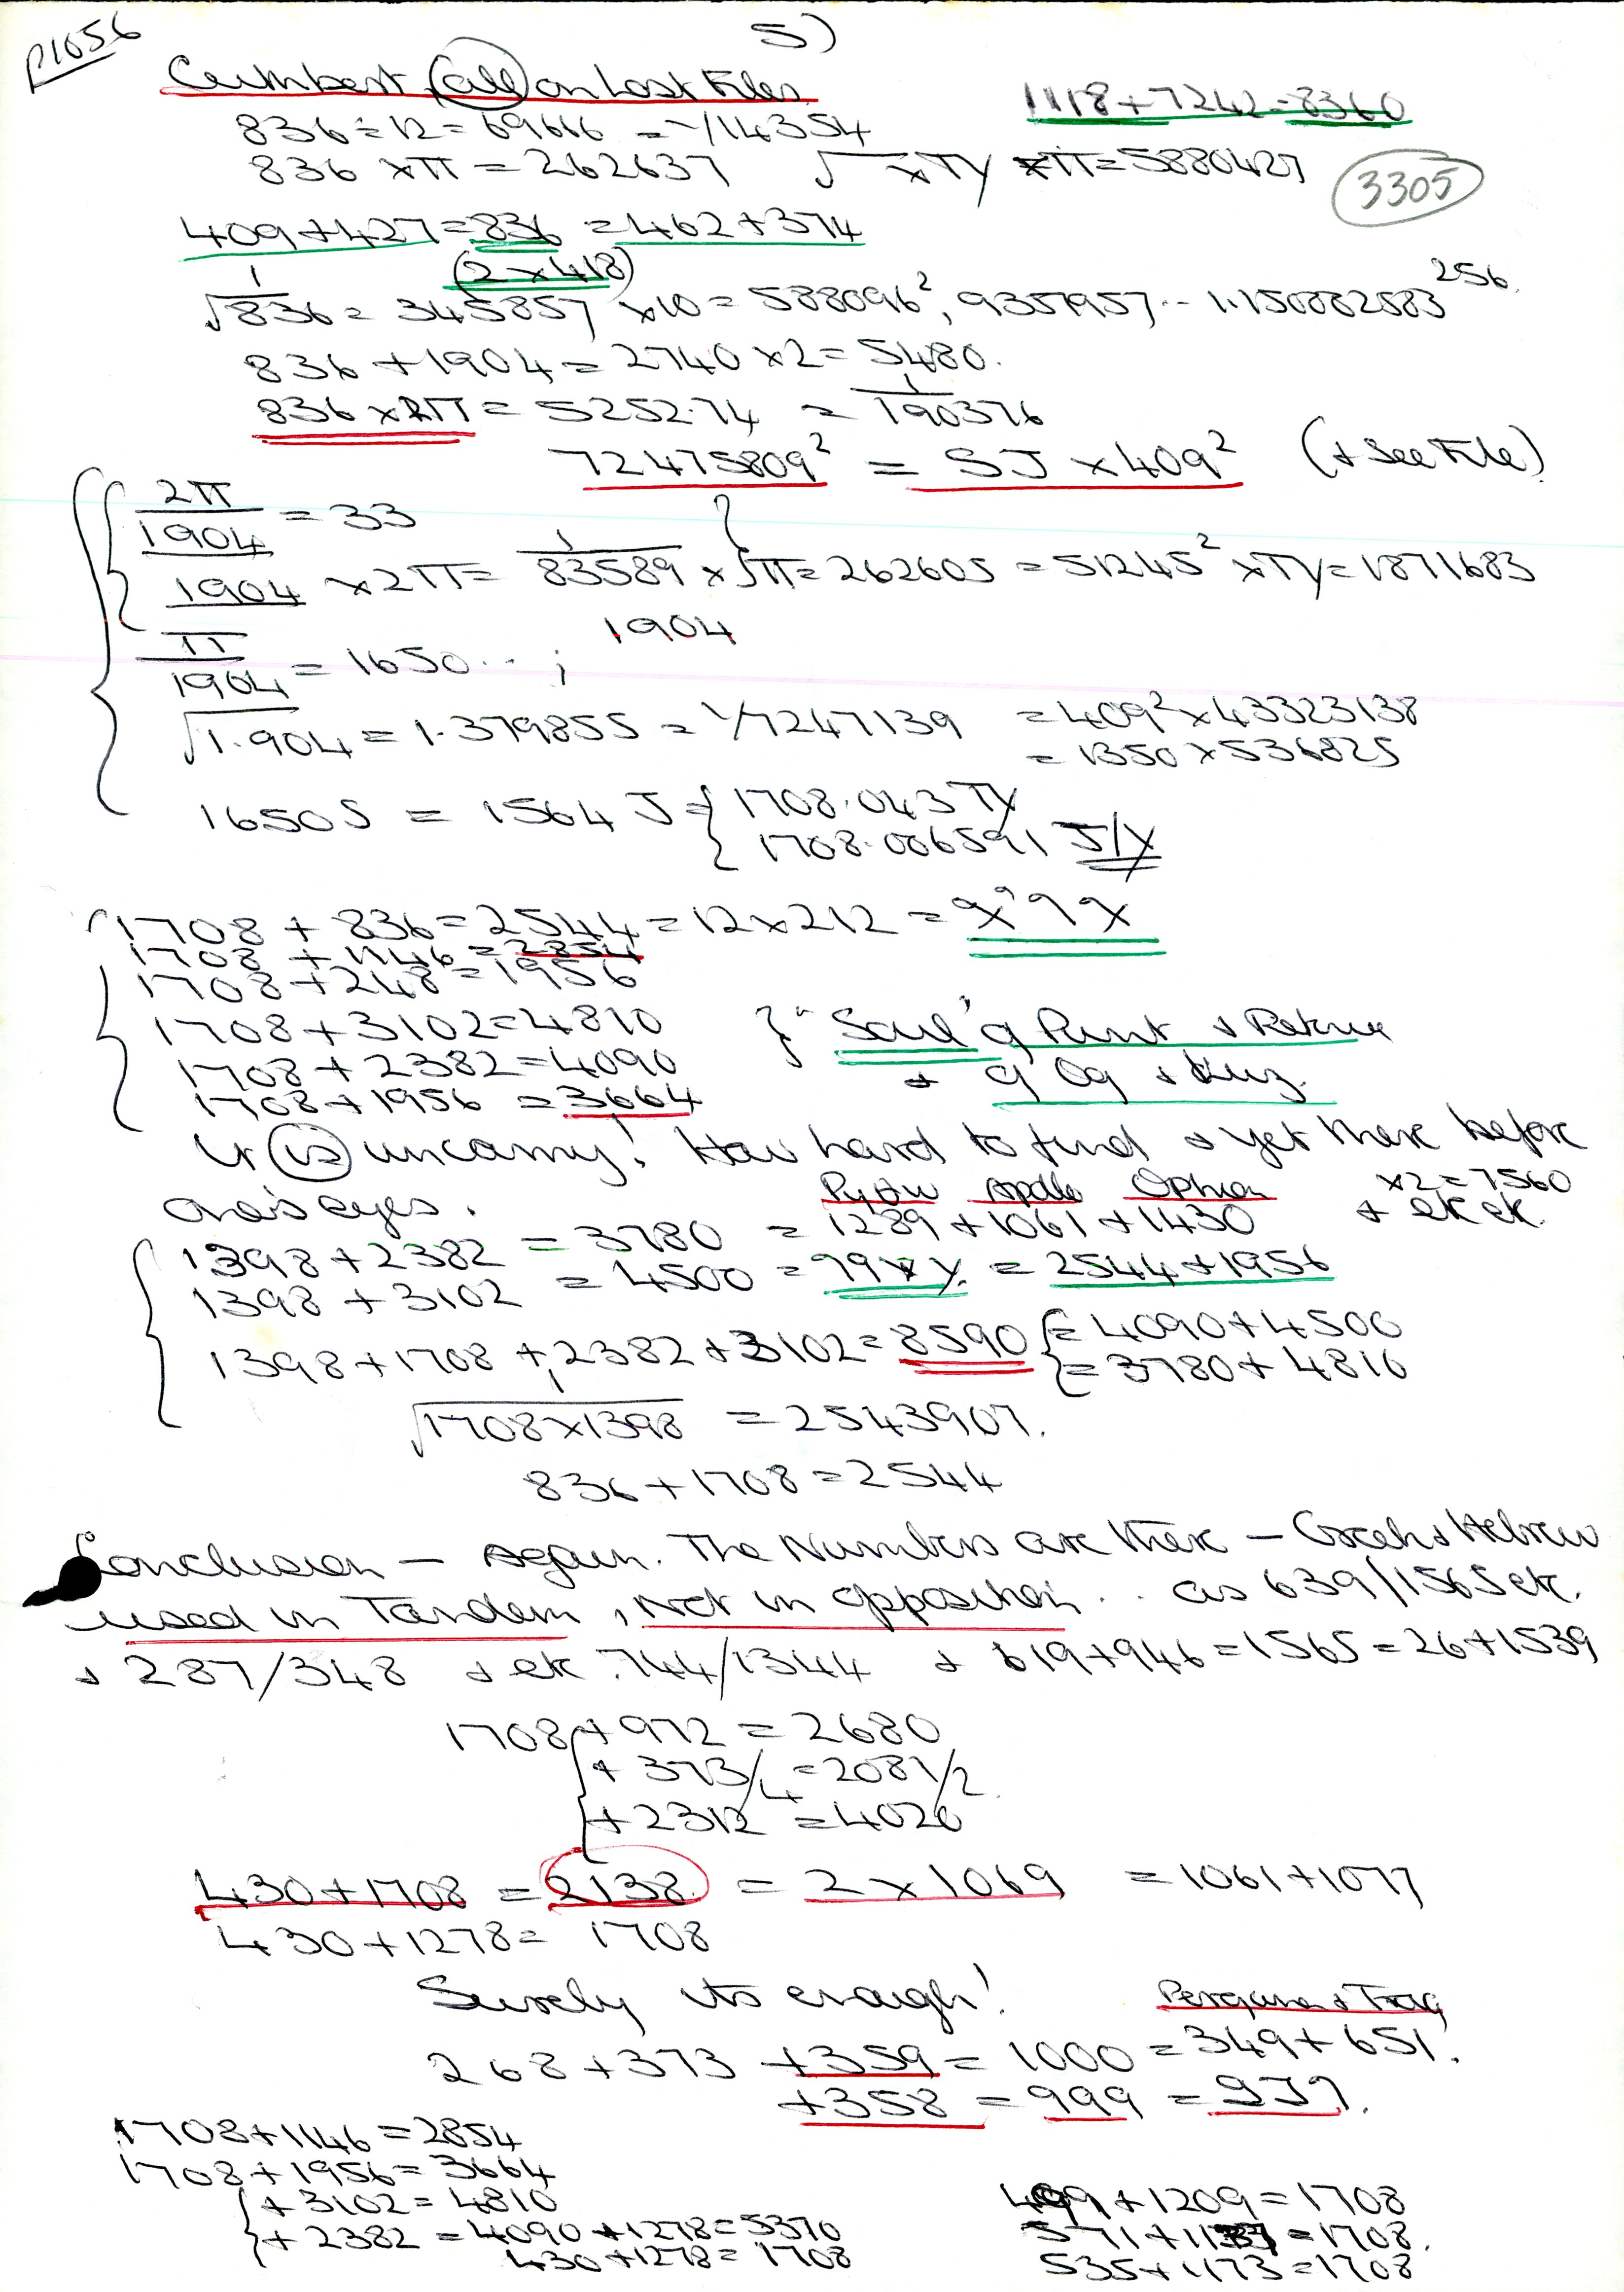 P1056
5)
Cuthbert (all) on Lost Files
1118+7242=8360
836÷12=69666 = √/14354
836 × π = 262637 √ × Ty × π = 5880427
3305
409+427=836 = 462+374
(2×418)
1/√836 = 345857 ×10 = 588096², 9357957.. 1.150882583^256
836 + 1904 = 2740 ×2 = 5480.
836 × 2π = 5252.74 = 1/190376
72475809² = SJ × 409² (+ See File)
2π/1904 = 33
1904 × 2π = 1/83589 × √π = 262605 = 51245² × Ty = 1871683
1904
π/1904 = 1650.. ;
√1.904 = 1.379855 = 1/7247139 = 409² × 43323138
= 1350 × 536825
1650S = 1564 J = { 1708.043 Ty
1708.006591 J/Y
1708 + 836 = 2544 = 12×212
1708 + 1146 = 2854
1708 + 248 = 1956
1708 + 3102 = 4810 } "Soul" of Punt +
1708 + 2382 = 4090 + of Og +
1708 + 1956 = 3664
It (is) uncanny! How hard to find & yet there before
one's eyes.
Apollo ×2=7560
1398+2382 = 3780 = 1289+1061+1430 + etc etc.
1398 + 3102 = 4500 = = 2544+1956
1398+1708+2382+3102=8590 { = 4090+4500
= 3780+4810
1/√1708×1398 = 2543907.
836+1708=2544
Conclusion — Again. The Numbers are there — Greek & Hebrew
used in Tandem, Not in opposition .. as 639/1565 etc.
+ 287/348 + etc. 744/1344 + 619+946=1565=26+1539
1708 + 972 = 2680
+ 373/4 = 2081/2
+ 2312 = 4020
430+1708 = 2138 = 2×1069 = 1061+1077
430+1278= 1708
Surely its enough!
268+373 +359 = 1000 = 349+651.
+358 = 999
1708+1146=2854
1708+1956=3664
+3102=4810
+2382=4090+1278=5370
430+1278=1708
499+1209=1708
571+1137=1708.
535+1173=1708